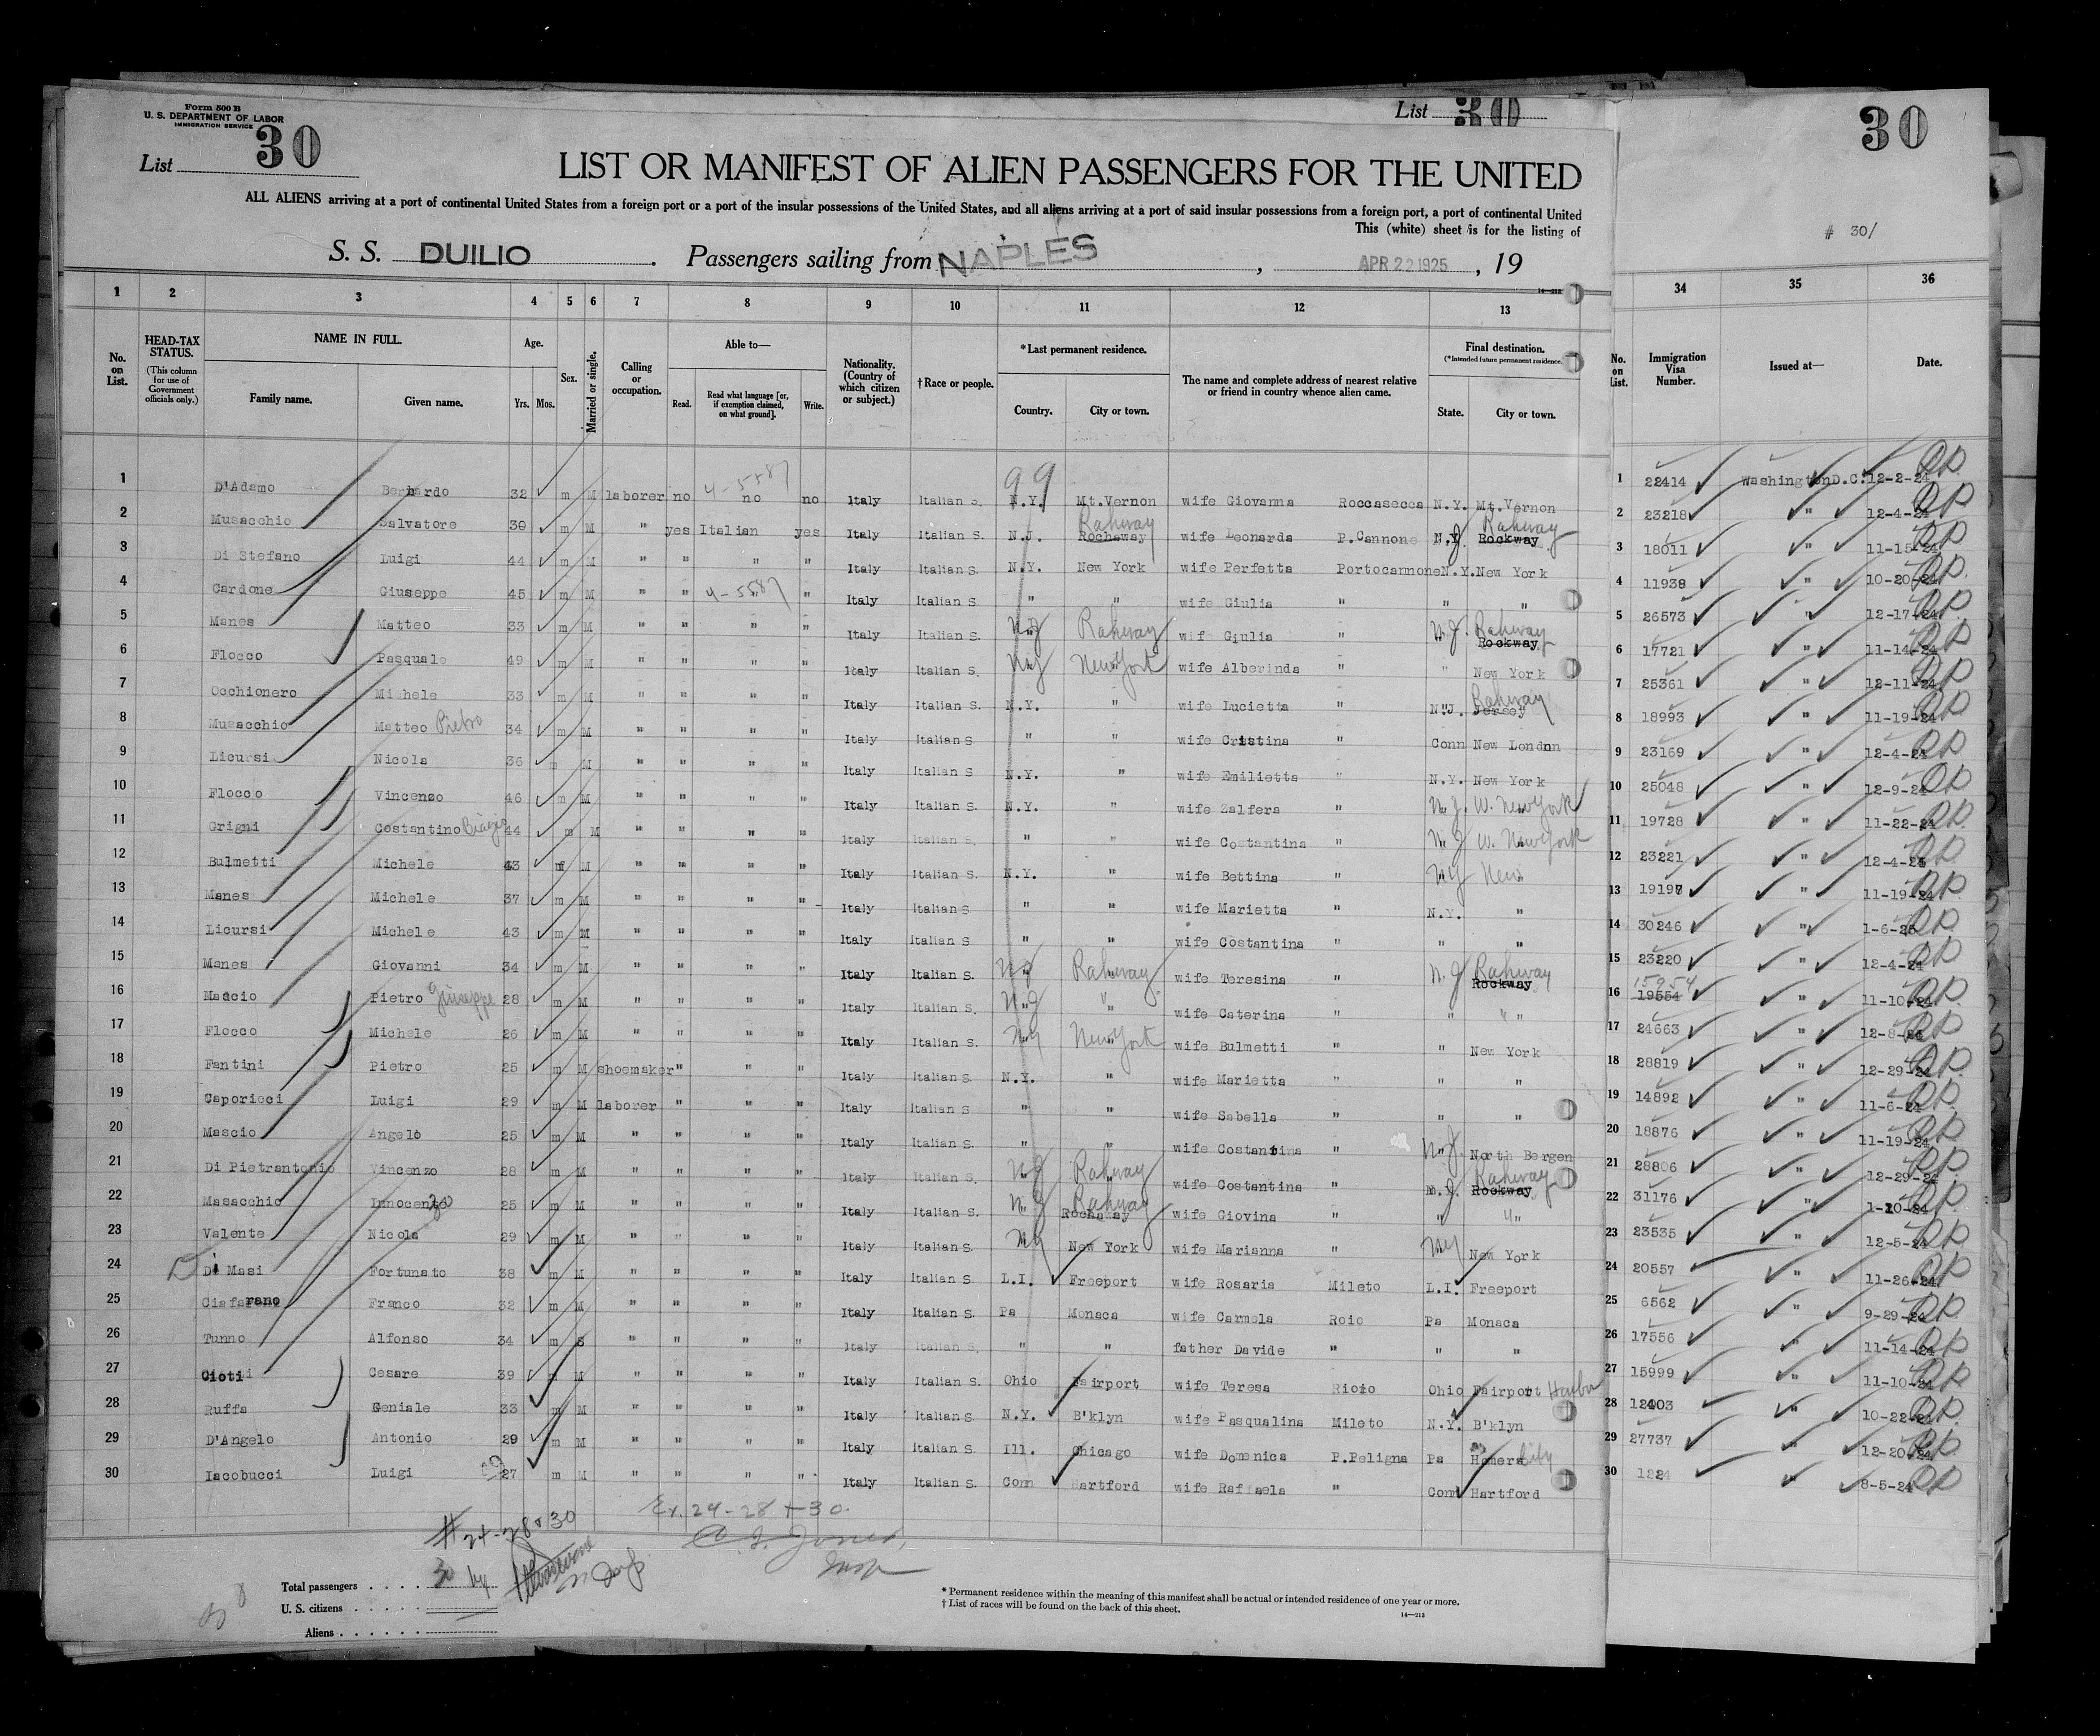 Form 500 B
U. S. DEPARTMENT OF LABOR
IMMIGRATION SERVICE
List 30
List 30
30
LIST OR MANIFEST OF ALIEN PASSENGERS FOR THE UNITED
ALL ALIENS arriving at a port of continental United States from a foreign port or a port of the insular possessions of the United States, and all aliens arriving at a port of said insular possessions from a foreign port, a port of continental United
This (white) sheet is for the listing of
# 30/
S. S. DUILIO. Passengers sailing from NAPLES, APR 22 1925, 19
14—213
1 2 3 4 5 6 7 8 9 10 11 12 13 34 35 36
No. on List. HEAD-TAX STATUS. (This column for use of Government officials only.) NAME IN FULL. Family name. Given name. Age. Yrs. Mos. Sex. Married or single. Calling or occupation. Able to— Read. Read what language [or, if exemption claimed, on what ground]. Write. Nationality. (Country of which citizen or subject.) † Race or people. * Last permanent residence. Country. City or town. The name and complete address of nearest relative or friend in country whence alien came. Final destination. (*Intended future permanent residence.) State. City or town. No. on List. Immigration Visa Number. Issued at— Date.
99
4-5587
1 D'Adamo Bernardo 32 m M laborer no no no Italy Italian S. N.Y. Mt.Vernon wife Giovanna Roccasecca N.Y. Mt.Vernon 1 22414 Washington D.C. 12-2-24
2 Musacchio Salvatore 30 m M " yes Italian yes Italy Italian S. N.J. Rahway Rochaway wife Leonarda P.Cannone N.J. Rahway Rockway 2 23218 " 12-4-24
3 Di Stefano Luigi 44 m M " " " " Italy Italian S. N.Y. New York wife Perfetta Portocannone N.Y. New York 3 18011 " 11-15-24
4 Cardone Giuseppe 45 m M " " 4-5587 " " Italy Italian S " " wife Giulia " " " 4 11938 " 10-20-24
5 Manes Matteo 33 m M " " " " Italy Italian S. N.J Rahway wife Giulia " N.J. Rahway Rockway 5 26573 " 12-17-24
6 Flocco Pasquale 49 m M " " " " Italy Italian S. NY New York wife Alberinda " " New York 6 17721 " 11-14-24
7 Occhionero Michele 33 m M " " " " Italy Italian S. N.Y. " wife Lucietta " N.J. Rahway Jersey 7 25361 " 12-11-24
8 Musacchio Matteo Pietro 34 m M " " " " Italy Italian S " " wife Cristina " Conn New London 8 18993 " 11-19-24
9 Licursi Nicola 36 m M " " " " Italy Italian S N.Y. " wife Emilietta " N.Y. New York 9 23169 " 12-4-24
10 Flocco Vincenzo 46 m M " " " " Italy Italian S. N.Y. " wife Zalfera " N.J. W. New York 10 25048 " 12-9-24
11 Grigni Costantino Biagio 44 m M " " " " Italy Italian S. " " wife Costantina " N.J W. New York 11 19728 " 11-22-24
12 Bulmetti Michele 43 m M " " " " Italy Italian S. N.Y. " wife Bettina " NY New " 12 23221 " 12-4-24
13 Manes Michele 37 m M " " " " Italy Italian S " " wife Marietta " N.Y. " 13 19197 " 11-19-24
14 Licursi Michele 43 m M " " " " Italy Italian S " " wife Costantina " " " 14 30246 " 1-6-25
15 Manes Giovanni 34 m M " " " " Italy Italian S. NJ Rahway wife Teresina " N.J Rahway Rockway 15 23220 " 12-4-24
16 Mascio Pietro Giuseppe 28 m M " " " " Italy Italian S. N.J " wife Caterina " " " 16 15954 19554 " 11-10-24
17 Flocco Michele 26 m M " " " " Italy Italian S. NY New York wife Bulmetti " " New York 17 24663 " 12-8-24
18 Fantini Pietro 25 m M shoemaker " " " Italy Italian S. N.Y. " wife Marietta " " " 18 28819 " 12-29-24
19 Caporicci Luigi 29 m M laborer " " " Italy Italian S " " wife Sabella " " " 19 14892 " 11-6-24
20 Mascio Angelo 25 m M " " " " Italy Italian S. " " wife Costantina " N.J. North Bergen 20 18876 " 11-19-24
21 Di Pietrantonio Vincenzo 28 m M " " " " Italy Italian S. NJ Rahway wife Costantina " N.J. Rahway Rockway 21 28806 " 12-29-24
22 Masacchio Innocenzo 25 m M " " " " Italy Italian S. N.J Rahway Rochaway wife Giovina " " " 22 31176 " 1-10-24
23 Valente Nicola 29 m M " " " " Italy Italian S. NY New York wife Marianna " NY New York 23 23535 " 12-5-24
24 Di Masi Fortunato 38 m M " " " " Italy Italian S L.I. Freeport wife Rosaria Mileto L.I. Freeport 24 20557 " 11-26-24
25 Ciafarano Franco 32 m M " " " " Italy Italian S. Pa Monaca wife Carmela Roio Pa Monaca 25 6562 " 9-29-24
26 Tunno Alfonso 34 m S " " " " Italy Italian S. " " father Davide " " " 26 17556 " 11-14-24
27 Cioti Cesare 39 m M " " " " Italy Italian S. Ohio Fairport wife Teresa Ohio Fairport Harbor 27 15999 " 11-10-24
28 Ruffa Geniale 33 m M " " " " Italy Italian S. N.Y. B'klyn wife Pasqualina Mileto N.Y. B'klyn 28 12403 " 10-22-24
29 D'Angelo Antonio 29 m M " " " " Italy Italian S Ill. Chicago wife Domenica P.Peligna Pa Homer City 29 27737 " 12-20-24
30 Iacobucci Luigi 27 m M " " " " Italy Italian S. Conn Hartford wife Raffaela " Conn Hartford 30 1224 " 8-5-24
# 24-28 & 30
Ex. 24-28 + 30.
Jones, Insp
Total passengers 30 by
U. S. citizens
Aliens
* Permanent residence within the meaning of this manifest shall be actual or intended residence of one year or more.
† List of races will be found on the back of this sheet.
14—213